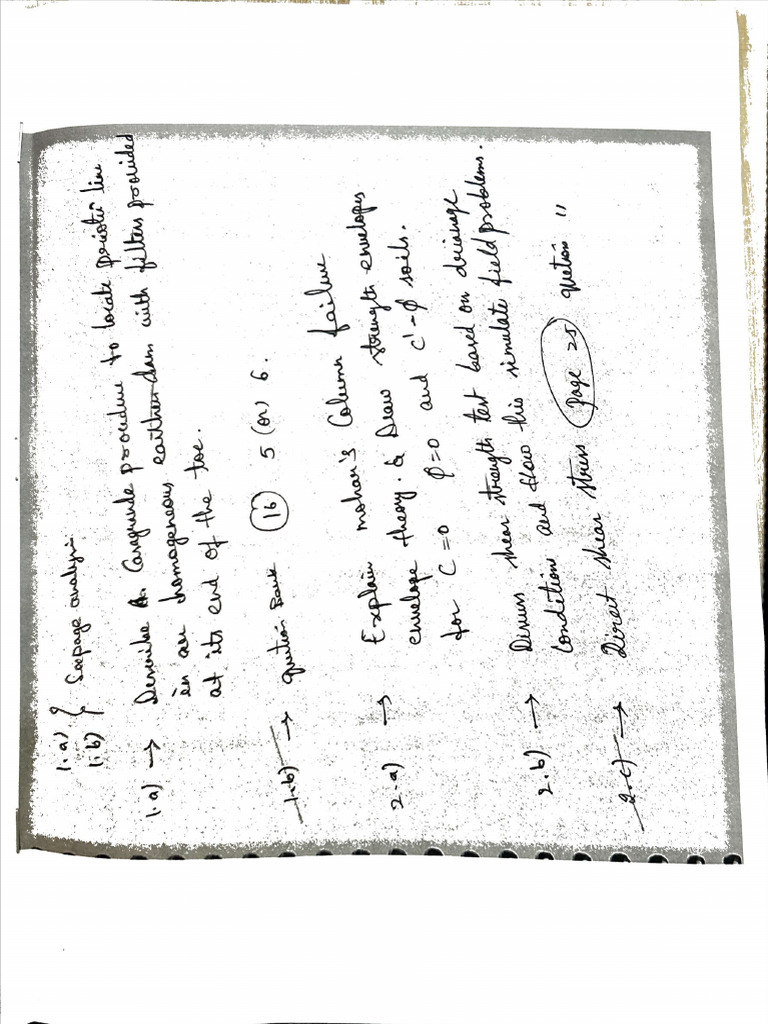 1.a)
1.b) } Seepage analysis.
1.a) → Describe A. Casagrande procedure to locate
in an homogeneous earthen dam with filters provided
at its end of the toe.
1.b) → question Bank (16) 5 (or) 6.
2.a) → Explain mohar's Column failure
envelope theory. & Draw strength envelopes
for C=0 ϕ=0 and c'-ϕ soils.
2.b) → Discuss shear strength test based on drainage
Conditions and How this simulate field problems.
2.c) → Direct shear stress (page 25) "